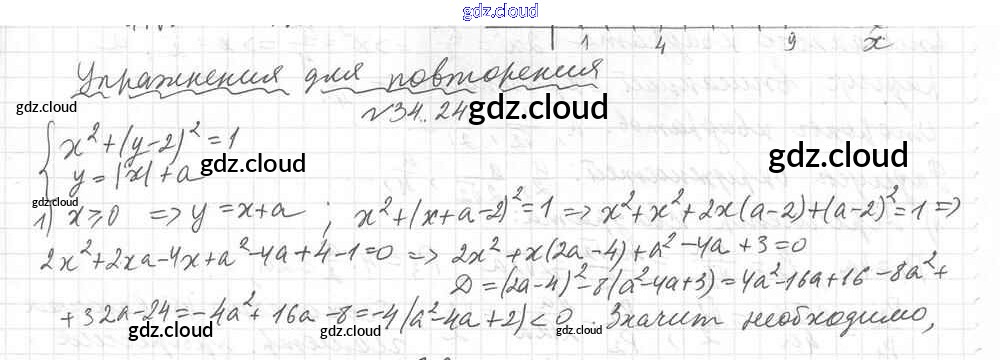 gdz.cloud
1 4 9 x
Упражнения для повторения
gdz.cloud №34.24 gdz.cloud
{ x² + (y-2)² = 1
y = |x| + a gdz.cloud gdz.cloud
1) x ≥ 0 => y = x+a ; x² + (x+a-2)² = 1 => x² + x² + 2x(a-2) + (a-2)² = 1 =>
2x² + 2xa - 4x + a² - 4a + 4 - 1 = 0 => 2x² + x(2a-4) + a² - 4a + 3 = 0
D = (2a-4)² - 8(a² - 4a + 3) = 4a² - 16a + 16 - 8a² +
+ 32a - 24 = -4a² + 16a - 8 = -4(a² - 4a + 2) < 0. Значит необходимо,
gdz.cloud gdz.cloud gdz.cloud